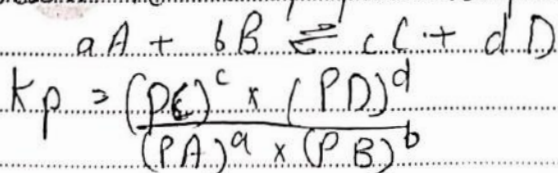 aA + bB ⇌ cC + dD
Kp = (PC)^c x (PD)^d
(PA)^a x (PB)^b